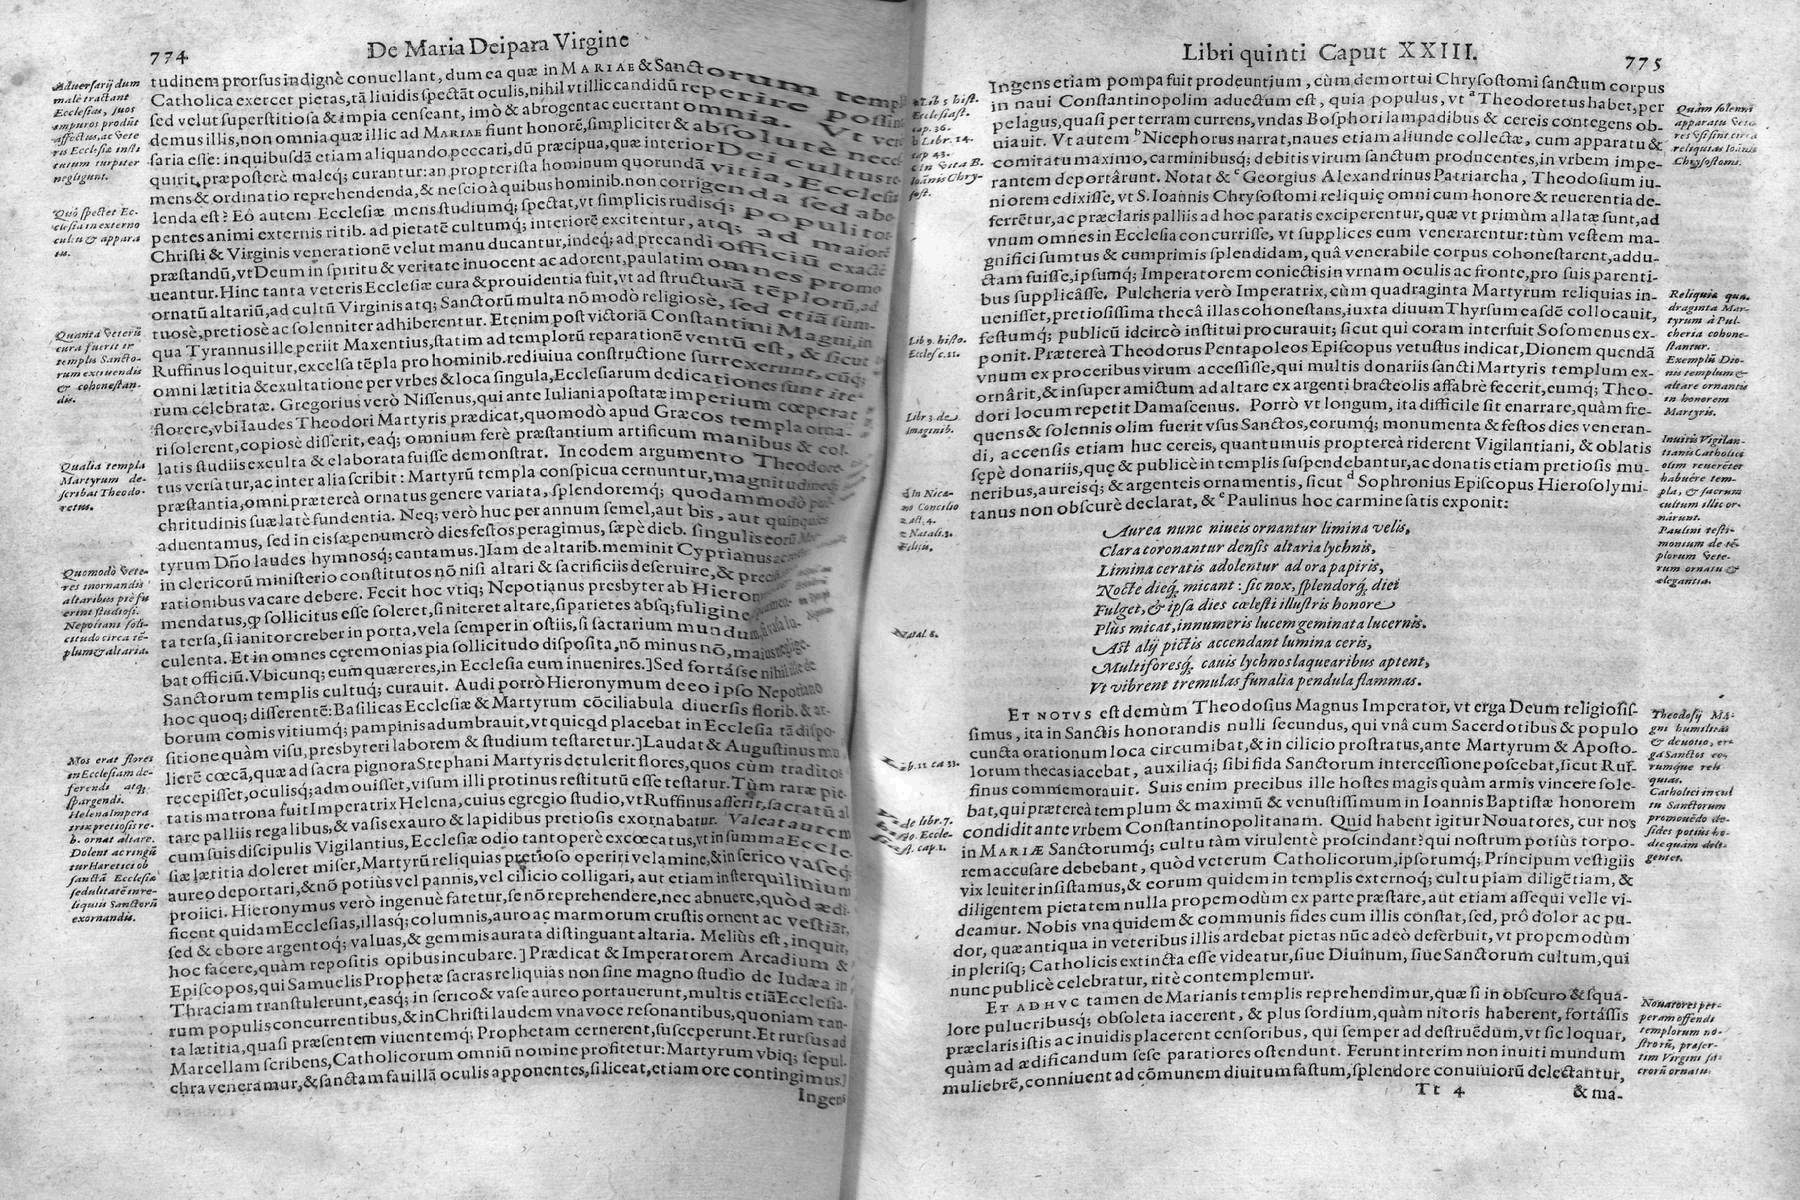 774
De Maria Deipara Virgine
tudinem prorsus indignè conuellant, dum ea quæ in MARIAE & Sanctorum templis
Catholica exercet pietas, tā liuidis spectāt oculis, nihil vt illic candidū reperire possint,
sed velut superstitiosa & impia censeant, imò & abrogent ac euertant omnia. Vt verò
demus illis, non omnia quæ illic ad MARIAE fiunt honorē, simpliciter & absolutè neces-
saria esse: in quibusdā etiam aliquando peccari, dū præcipua, quæ interior Dei cultus re-
quirit, præposterè maleq; curantur: an propter ista hominum quorundā vitia, Ecclesiæ
mens & ordinatio reprehendenda, & nescio à quibus hominib. non corrigenda sed abo-
lenda est? Eò autem Ecclesiæ mens studiumq; spectat, vt simplicis rudisq; populi tor-
pentes animi externis ritib. ad pietatē cultumq; interiorē excitentur, atq; ad maiorē
Christi & Virginis venerationē velut manu ducantur, indeq; ad precandi officiū exactè
præstandū, vt Deum in spiritu & veritate inuocent ac adorent, paulatim omnes promo
ueantur. Hinc tanta veteris Ecclesiæ cura & prouidentia fuit, vt ad structurā tēplorū, ad
ornatū altariū, ad cultū Virginis atq; Sanctorū multa nō modò religiosè, sed etiā sum-
tuosè, pretiosè ac solenniter adhiberentur. Etenim post victoriā Constantini Magni, in
qua Tyrannus ille periit Maxentius, statim ad templorū reparationē ventū est, & sicut
Ruffinus loquitur, excelsa tēpla pro hominib. rediuiua constructione surrexerunt, cūq;
omni lætitia & exultatione per vrbes & loca singula, Ecclesiarum dedicationes sunt ite-
rum celebratæ. Gregorius verò Nissenus, qui ante Iuliani apostatæ imperium cœperat
florere, vbi laudes Theodori Martyris prædicat, quomodò apud Græcos templa orna-
ri solerent, copiosè disserit, eaq; omnium ferè præstantium artificum manibus & col-
latis studiis exculta & elaborata fuisse demonstrat. In eodem argumento Theodore-
tus versatur, ac inter alia scribit: Martyrū templa conspicua cernuntur, magnitudineq;
præstantia, omni prætereà ornatus genere variata, splendoremq; quodammodò pul-
chritudinis suæ latè fundentia. Neq; verò huc per annum semel, aut bis, aut quinquies
aduentamus, sed in eis sæpenumerò dies festos peragimus, sæpè dieb. singulis eorū Mar-
tyrum Dño laudes hymnosq; cantamus.] Iam de altarib. meminit Cyprianus
in clericorū ministerio constitutos nō nisi altari & sacrificiis deseruire, & preci
rationibus vacare debere. Fecit hoc vtiq; Nepotianus presbyter ab Hieron
mendatus, qꝫ sollicitus esse soleret, si niteret altare, si parietes absq; fuligine
ta tersa, si ianitor creber in porta, vela semper in ostiis, si sacrarium mundum,
culenta. Et in omnes ceremonias pia sollicitudo disposita, nō minus nō, maius neglige-
bat officiū. Vbicunq; eum quæreres, in Ecclesia eum inuenires.] Sed fortásse nihil ille de
Sanctorum templis cultuq; curauit. Audi porrò Hieronymum de eo ipso Nepotiano
hoc quoq; disserentē: Basilicas Ecclesiæ & Martyrum cōciliabula diuersis florib. & ar-
borum comis vitiumq; pampinis adumbrauit, vt quicqd placebat in Ecclesia tā dispo-
sitione quàm visu, presbyteri laborem & studium testaretur.] Laudat & Augustinus mu
lierē cœcā, quæ ad sacra pignora Stephani Martyris detulerit flores, quos cùm traditos
recepisset, oculisq; admouisset, visum illi protinus restitutū esse testatur. Tùm raræ pie-
tatis matrona fuit Imperatrix Helena, cuius egregio studio, vt Ruffinus asserit, sacratū al
tare palliis regalibus, & vasis ex auro & lapidibus pretiosis exornabatur. Valeat autem
cum suis discipulis Vigilantius, Ecclesiæ odio tantoperè excœcatus, vt in summa Eccle-
siæ lætitia doleret miser, Martyrū reliquias pretioso operiri velamine, & in serico vaseq;
aureo deportari, & nō potiùs vel pannis, vel cilicio colligari, aut etiam in sterquilinium
proiici. Hieronymus verò ingenuè fatetur, se nō reprehendere, nec abnuere, quòd ædi-
ficent quidam Ecclesias, illasq; columnis, auro ac marmorum crustis ornent ac vestiāt,
sed & ebore argentoq; valuas, & gemmis aurata distinguant altaria. Meliùs est, inquit,
hoc facere, quàm repositis opibus incubare.] Prædicat & Imperatorem Arcadium &
Episcopos, qui Samuelis Prophetæ sacras reliquias non sine magno studio de Iudæa in
Thraciam transtulerunt, easq; in serico & vase aureo portauerunt, multis etiā Ecclesia-
rum populis concurrentibus, & in Christi laudem vna voce resonantibus, quoniam tan-
ta lætitia, quasi præsentem viuentemq; Prophetam cernerent, susceperunt. Et rursus ad
Marcellam scribens, Catholicorum omniū nomine profitetur: Martyrum vbiq; sepul-
chra veneramur, & sanctam fauillā oculis apponentes, si liceat, etiam ore contingimus.]
Ingens
Aduersarij dum
malè tractant
Ecclesias, suos
impuros produt
affectus, ac vete
ris Ecclesiæ insti
tutum turpiter
negligunt.
Quò spectet Ec-
clesia in externo
cultu & appara
tu.
Quanta veterū
cura fuerit in
templis Sancto-
rum extruendis
& cohonestan-
dis.
Qualia templa
Martyrum de-
scribat Theodo-
retus.
Quomodò Vete-
res in ornandis
altaribus piè fu
erint studiosi.
Nepotiani soli-
citudo circa tē-
plum & altaria.
Mos erat flores
in Ecclesiam de-
ferendi atq;
spargendi.
Helena Impera
trix pretiosis re-
b. ornat altare.
Dolent ac ringū
tur Hæretici ob
sanctā Ecclesiæ
sedulitatē in re-
liquiis Sanctorū
exornandis.
Libri quinti Caput XXIII.
775
Ingens etiam pompa fuit prodeuntium, cùm demortui Chrysostomi sanctum corpus
in naui Constantinopolim aduectum est, quia populus, vt a Theodoretus habet, per
pelagus, quasi per terram currens, vndas Bosphori lampadibus & cereis contegens ob-
uiauit. Vt autem b Nicephorus narrat, naues etiam aliunde collectæ, cum apparatu &
comitatu maximo, carminibusq; debitis virum sanctum producentes, in vrbem impe-
rantem deportârunt. Notat & c Georgius Alexandrinus Patriarcha, Theodosium iu-
niorem edixisse, vt S. Ioannis Chrysostomi reliquię omni cum honore & reuerentia de-
ferrētur, ac præclaris palliis ad hoc paratis exciperentur, quæ vt primùm allatæ sunt, ad
vnum omnes in Ecclesia concurrisse, vt supplices eum venerarentur: tùm vestem ma-
gnifici sumtus & cumprimis splendidam, quâ venerabile corpus cohonestarent, addu-
ctam fuisse, ipsumq; Imperatorem coniectis in vrnam oculis ac fronte, pro suis parenti-
bus supplicâsse. Pulcheria verò Imperatrix, cùm quadraginta Martyrum reliquias in-
uenisset, pretiosissima thecâ illas cohonestans, iuxta diuum Thyrsum easdē collocauit,
festumq; publicū idcircò institui procurauit; sicut qui coram interfuit Sosomenus ex-
ponit. Prætereà Theodorus Pentapoleos Episcopus vetustus indicat, Dionem quendā
vnum ex proceribus virum accessisse, qui multis donariis sancti Martyris templum ex-
ornârit, & insuper amictum ad altare ex argenti bracteolis affabrè fecerit, eumq; Theo-
dori locum repetit Damascenus. Porrò vt longum, ita difficile sit enarrare, quàm fre-
quens & solennis olim fuerit vsus Sanctos, eorumq; monumenta & festos dies veneran-
di, accensis etiam huc cereis, quantumuis proptereà riderent Vigilantiani, & oblatis
sępè donariis, quę & publicè in templis suspendebantur, ac donatis etiam pretiosis mu-
neribus, aureisq; & argenteis ornamentis, sicut d Sophronius Episcopus Hierosolymi-
tanus non obscurè declarat, & e Paulinus hoc carmine satis exponit:
Aurea nunc niueis ornantur limina velis,
Clara coronantur densis altaria lychnis,
Limina ceratis adolentur adora papiris,
Nocte dieq́; micant: sic nox, splendorq́; diei
Fulget, & ipsa dies cœlesti illustris honore
Plùs micat, innumeris lucem geminata lucernis.
Ast alij pictis accendant lumina ceris,
Multiforesq́; cauis lychnos laquearibus aptent,
Vt vibrent tremulas funalia pendula flammas.
ET NOTVS est demùm Theodosius Magnus Imperator, vt erga Deum religiosis-
simus, ita in Sanctis honorandis nulli secundus, qui vnâ cum Sacerdotibus & populo
cuncta orationum loca circumibat, & in cilicio prostratus, ante Martyrum & Aposto-
lorum thecas iacebat, auxiliaq; sibi fida Sanctorum intercessione poscebat, sicut Ruf-
finus commemorauit. Suis enim precibus ille hostes magis quàm armis vincere sole-
bat, qui prætereà templum & maximū & venustissimum in Ioannis Baptistæ honorem
condidit ante vrbem Constantinopolitanam. Quid habent igitur Nouatores, cur nos
in MARIÆ Sanctorumq; cultu tàm virulentè proscindant? qui nostrum potiùs torpo-
rem accusare debebant, quòd veterum Catholicorum, ipsorumq; Principum vestigiis
vix leuiter insistamus, & eorum quidem in templis externoq; cultu piam diligētiam, &
diligentem pietatem nulla propemodùm ex parte præstare, aut etiam assequi velle vi-
deamur. Nobis vna quidem & communis fides cum illis constat, sed, prô dolor ac pu-
dor, quæ antiqua in veteribus illis ardebat pietas nūc adeò deferbuit, vt propemodùm
in plerisq; Catholicis extincta esse videatur, siue Diuinum, siue Sanctorum cultum, qui
nunc publicè celebratur, ritè contemplemur.
ET ADHVC tamen de Marianis templis reprehendimur, quæ si in obscuro & squa-
lore pulueribusq; obsoleta iacerent, & plus sordium, quàm nitoris haberent, fortássis
præclaris istis ac inuidis placerent censoribus, qui semper ad destruēdum, vt sic loquar,
quàm ad ædificandum sese paratiores ostendunt. Ferunt interim non inuiti mundum
muliebrē, conniuent ad cōmunem diuitum fastum, splendore conuiuiorū delectantur,
Tt 4
& ma-
a Lib 5 hist.
Ecclesiast.
cap. 36.
b Libr. 14.
cap 43.
c in vita B.
Ioānis Chry-
sost.
Lib 9. histo.
Eccles c. 11.
Libr 3. de
imaginib.
d In Nicæ-
no Concilio
2 act. 4.
e Natali. 3.
Felicis.
Natal. 6.
Lib. 11 ca 33.
de libr. 7.
Eccle-
cap. 1.
Quàm solenni
apparatu Vete-
res vsi sint circa
reliquias Ioānis
Chrysostomi.
Reliquiæ qua-
draginta Mar-
tyrum à Pul-
cheria cohone-
stantur.
Exemplū Dio-
nis templum &
altare ornantis
in honorem
Martyris.
Inuitis Vigilan-
tianis Catholici
olim reuerēter
habuêre tem-
pla, & sacrum
cultum illic or-
nârunt.
Paulini testi-
monium de tē-
plorum Vete-
rum ornatu &
elegantia.
Theodosij Ma-
gni humilitas
& deuotio, er-
ga Sanctos eo-
rumque reli-
quias.
Catholici in cul
tu Sanctorum
promouēdo de-
sides potiùs ho-
die quàm dili-
gentes.
Nouatores per-
peram offendi
templorum no-
strorū, præser-
tim Virgini sa-
crorū ornatu.